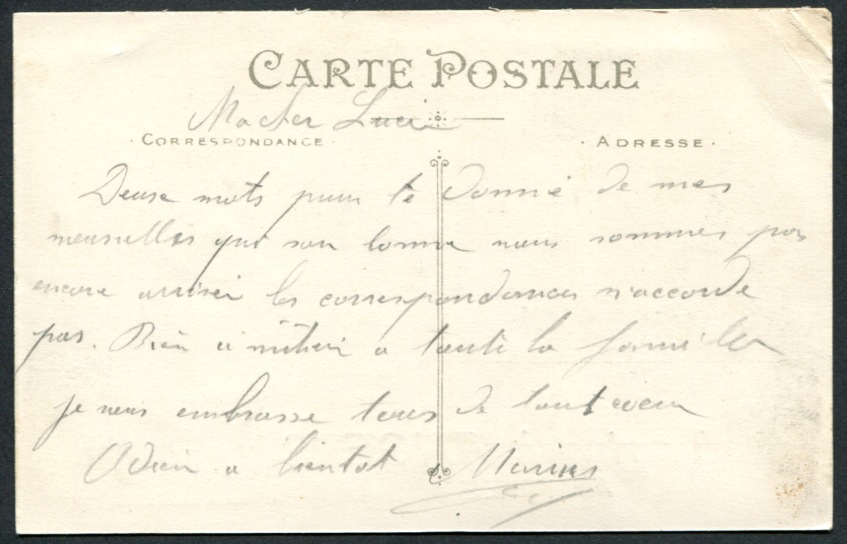 CARTE POSTALE
Ma cher Luci
· CORRESPONDANCE · · ADRESSE ·
Deuse mots pour te donné de mes
nousselles qui son bonne nous sommes pas
encore arriver les correspondances n'accorde
pas. Bien à toute la famille
je vous embrasse tous de tout coeur
Adieu a bientot Marius